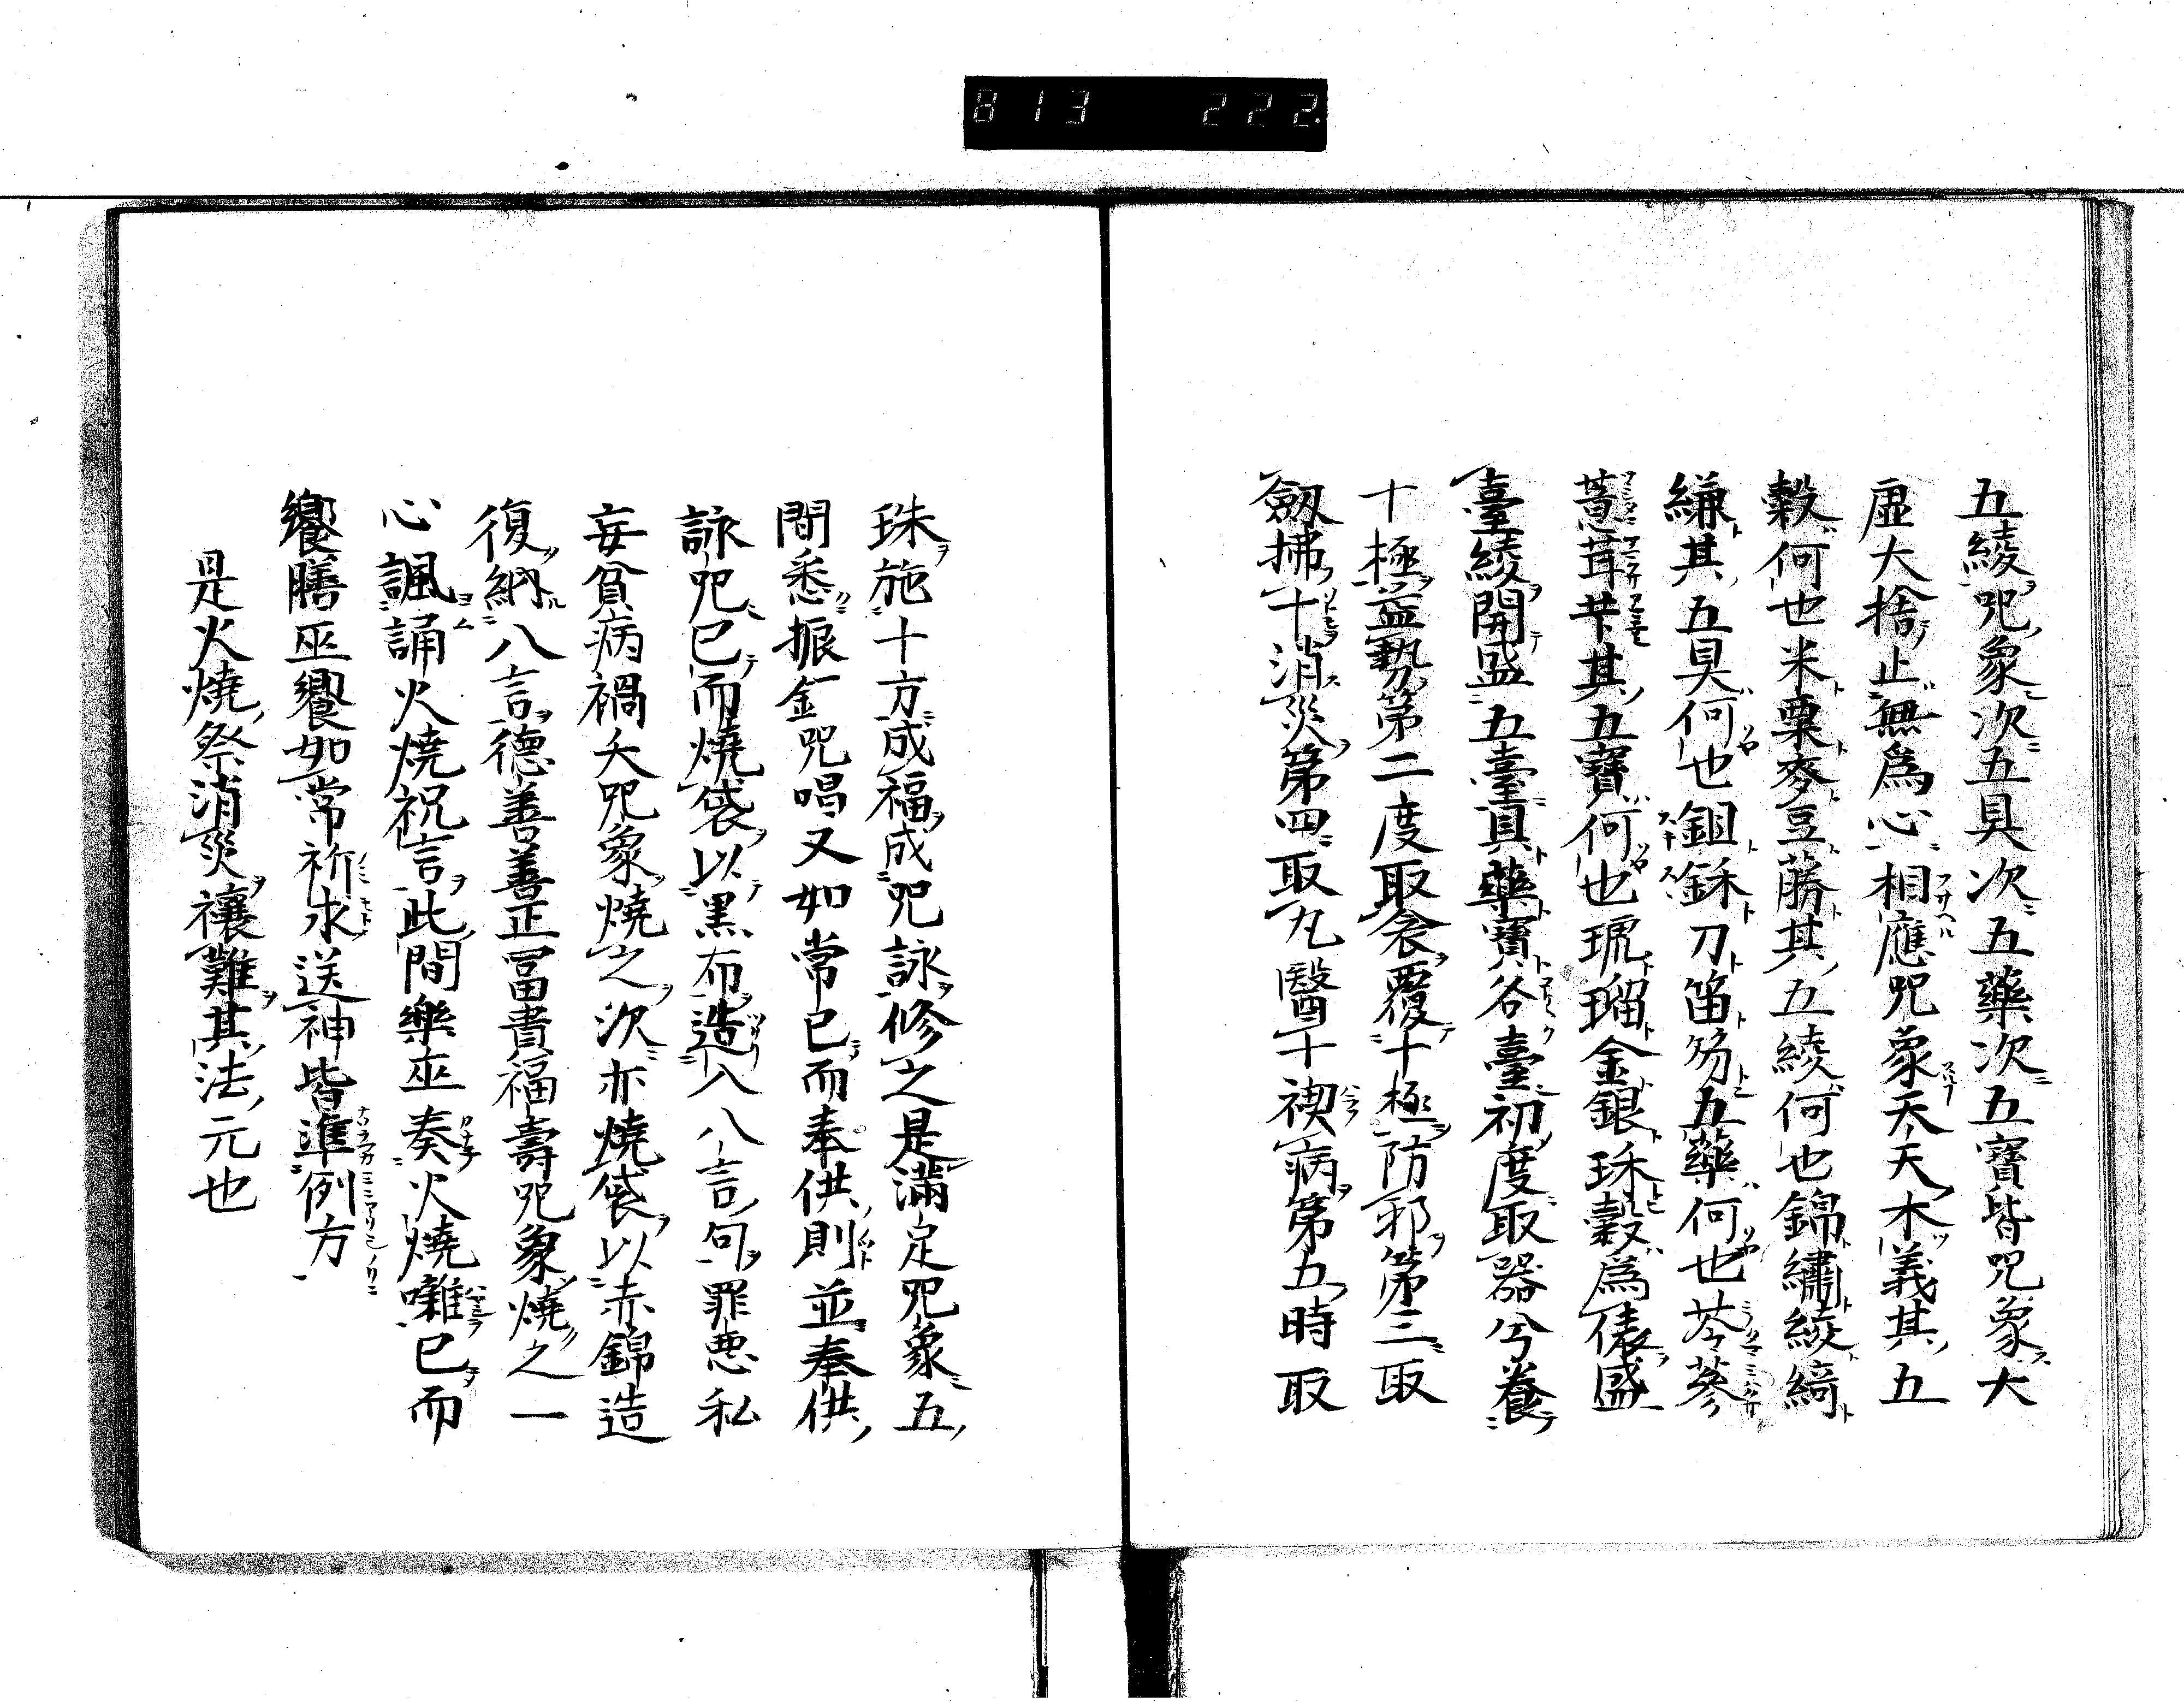 813 222.
五綾咒象次五具次五藥次五寶皆咒象大
虛大捨止無爲心相應咒象天天木義其五
穀何也米粟麥豆勝其五綾何也錦繡綾綺
縑其五具何也鉏鉌刀笛笏五藥何也芩蔘
其五寶何也琥瑠金銀珠穀爲俵盛
臺綾開盛五臺具藥寶谷臺初度取器兮養
十極益勢第二度取衾覆十極防邪第三取
劔拂十消災第四取丸醫十禊病第五時取
珠施十方成福成咒詠修之是滿定咒象五
間悉振釦咒唱又如常已而奉供則並奉供
詠咒已而燒袋以黑布造八八言句罪悪私
妄貧病禍夭咒象燒之次亦燒袋以赤錦造
復納八言德善善正冨貴福壽咒象燒之一
心諷誦火燒祝言此間樂巫奏火燒囃已而
饗膳巫饗如常祈求送神皆準例方
是火燒祭消災禳難其法元也